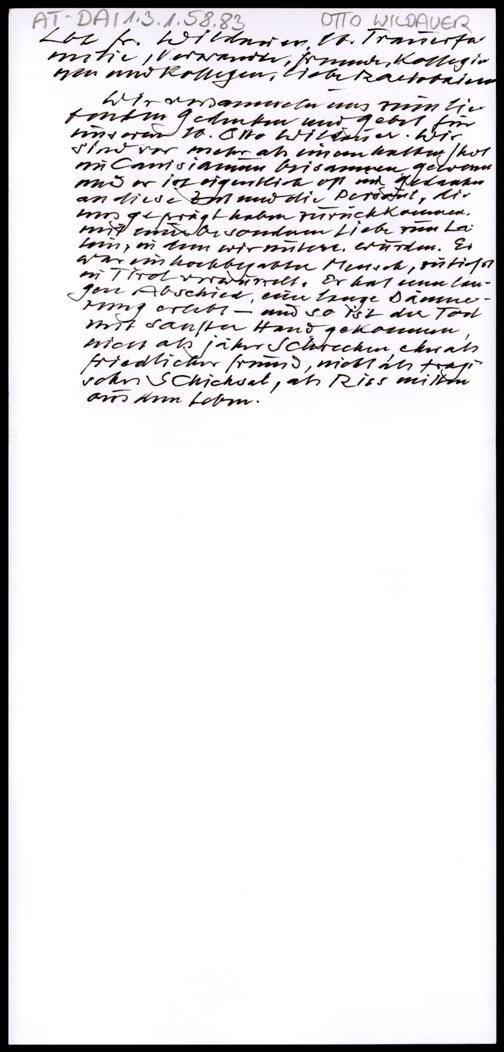 AT-DAI 1.3.1.58.83 OTTO WILDAUER
Lbe Fr. Wildauer, lb. Trauerfa
milie, Verwandte, Freunde, Kollegin
nen und Kollegen, liebe
Wir versammeln uns zum lie
benden Gedenken und Gebet für
unseren lb. Otto Wildauer. Wir
sind vor mehr als einem halben Jhdt
im Canisianum beisammen gewesen
und er ist eigentlich oft mit Gedanken
an diese Zeit und die Personen, die
uns geprägt haben zurückkommen.
mit einer besonderen Liebe zum La
tein, in dem wir unterr. wurden. Er
war ein hochbegabter Mensch, zutiefst
in Tirol verwurzelt. Er hat einen lan-
gen Abschied, eine lange Dämme-
rung erlebt – und so ist der Tod
mit sanfter Hand gekommen,
nicht als jäher Schrecken eher als
friedlicher Freund, nicht als tragi
sches Schicksal, als Riss mitten
aus dem Leben.